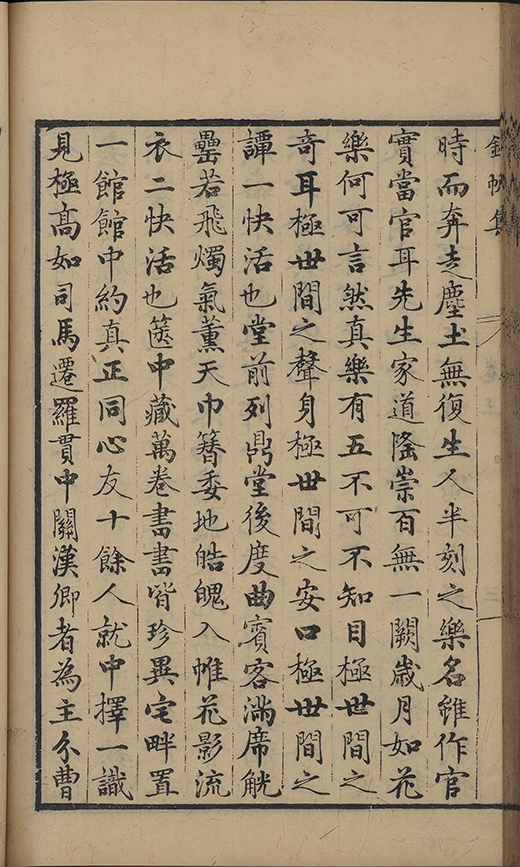 時而奔走塵土無復生人半刻之樂名雖作官
實當官耳先生家道隆崇百無一闕歲月如花
樂何可言然真樂有五不可不知目極世間之
奇耳極世間之聲身極世間之安口極世間之
譚一快活也堂前列鼎堂後度曲賓客滿席觥
罍若飛燭氣薰天巾簪委地皓魄入帷花影流
衣二快活也篋中藏萬卷書書皆珍異宅畔置
一館館中約真正同心友十餘人就中擇一識
見極高如司馬遷羅貫中關漢卿者為主分曹